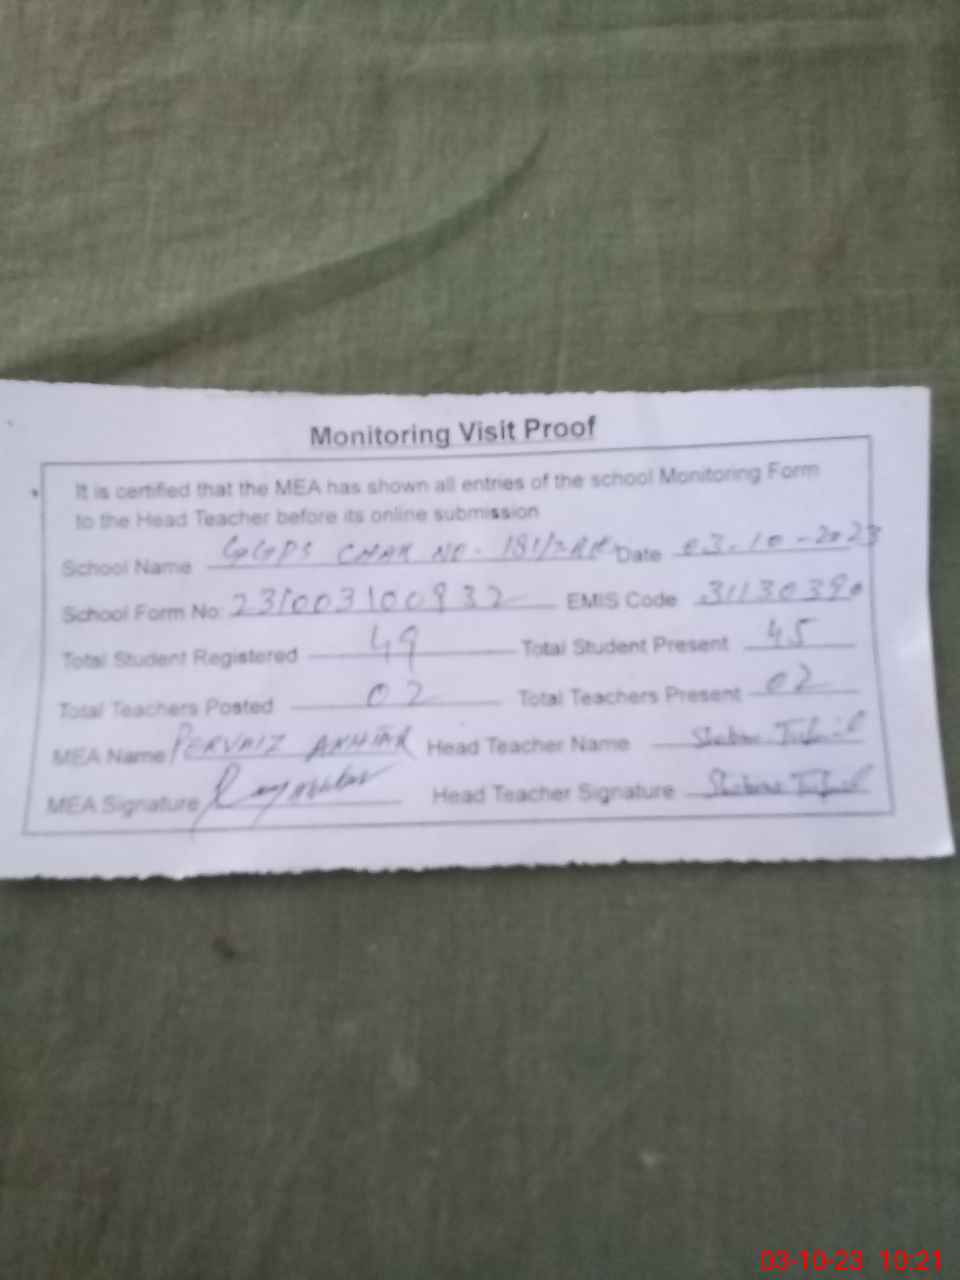 Monitoring Visit Proof
It is certified that the MEA has shown all entries of the school Monitoring Form
to the Head Teacher before its online submission
School Name GGPS CHAK NO. 181/ Date 03-10-2023
School Form No 231003100932 EMIS Code 31130390
Total Student Registered 49 Total Student Present 45
Total Teachers Posted 02 Total Teachers Present 02
MEA Name PERVAIZ AKHTAR Head Teacher Name
MEA Signature Head Teacher Signature
03-10-23 10:21